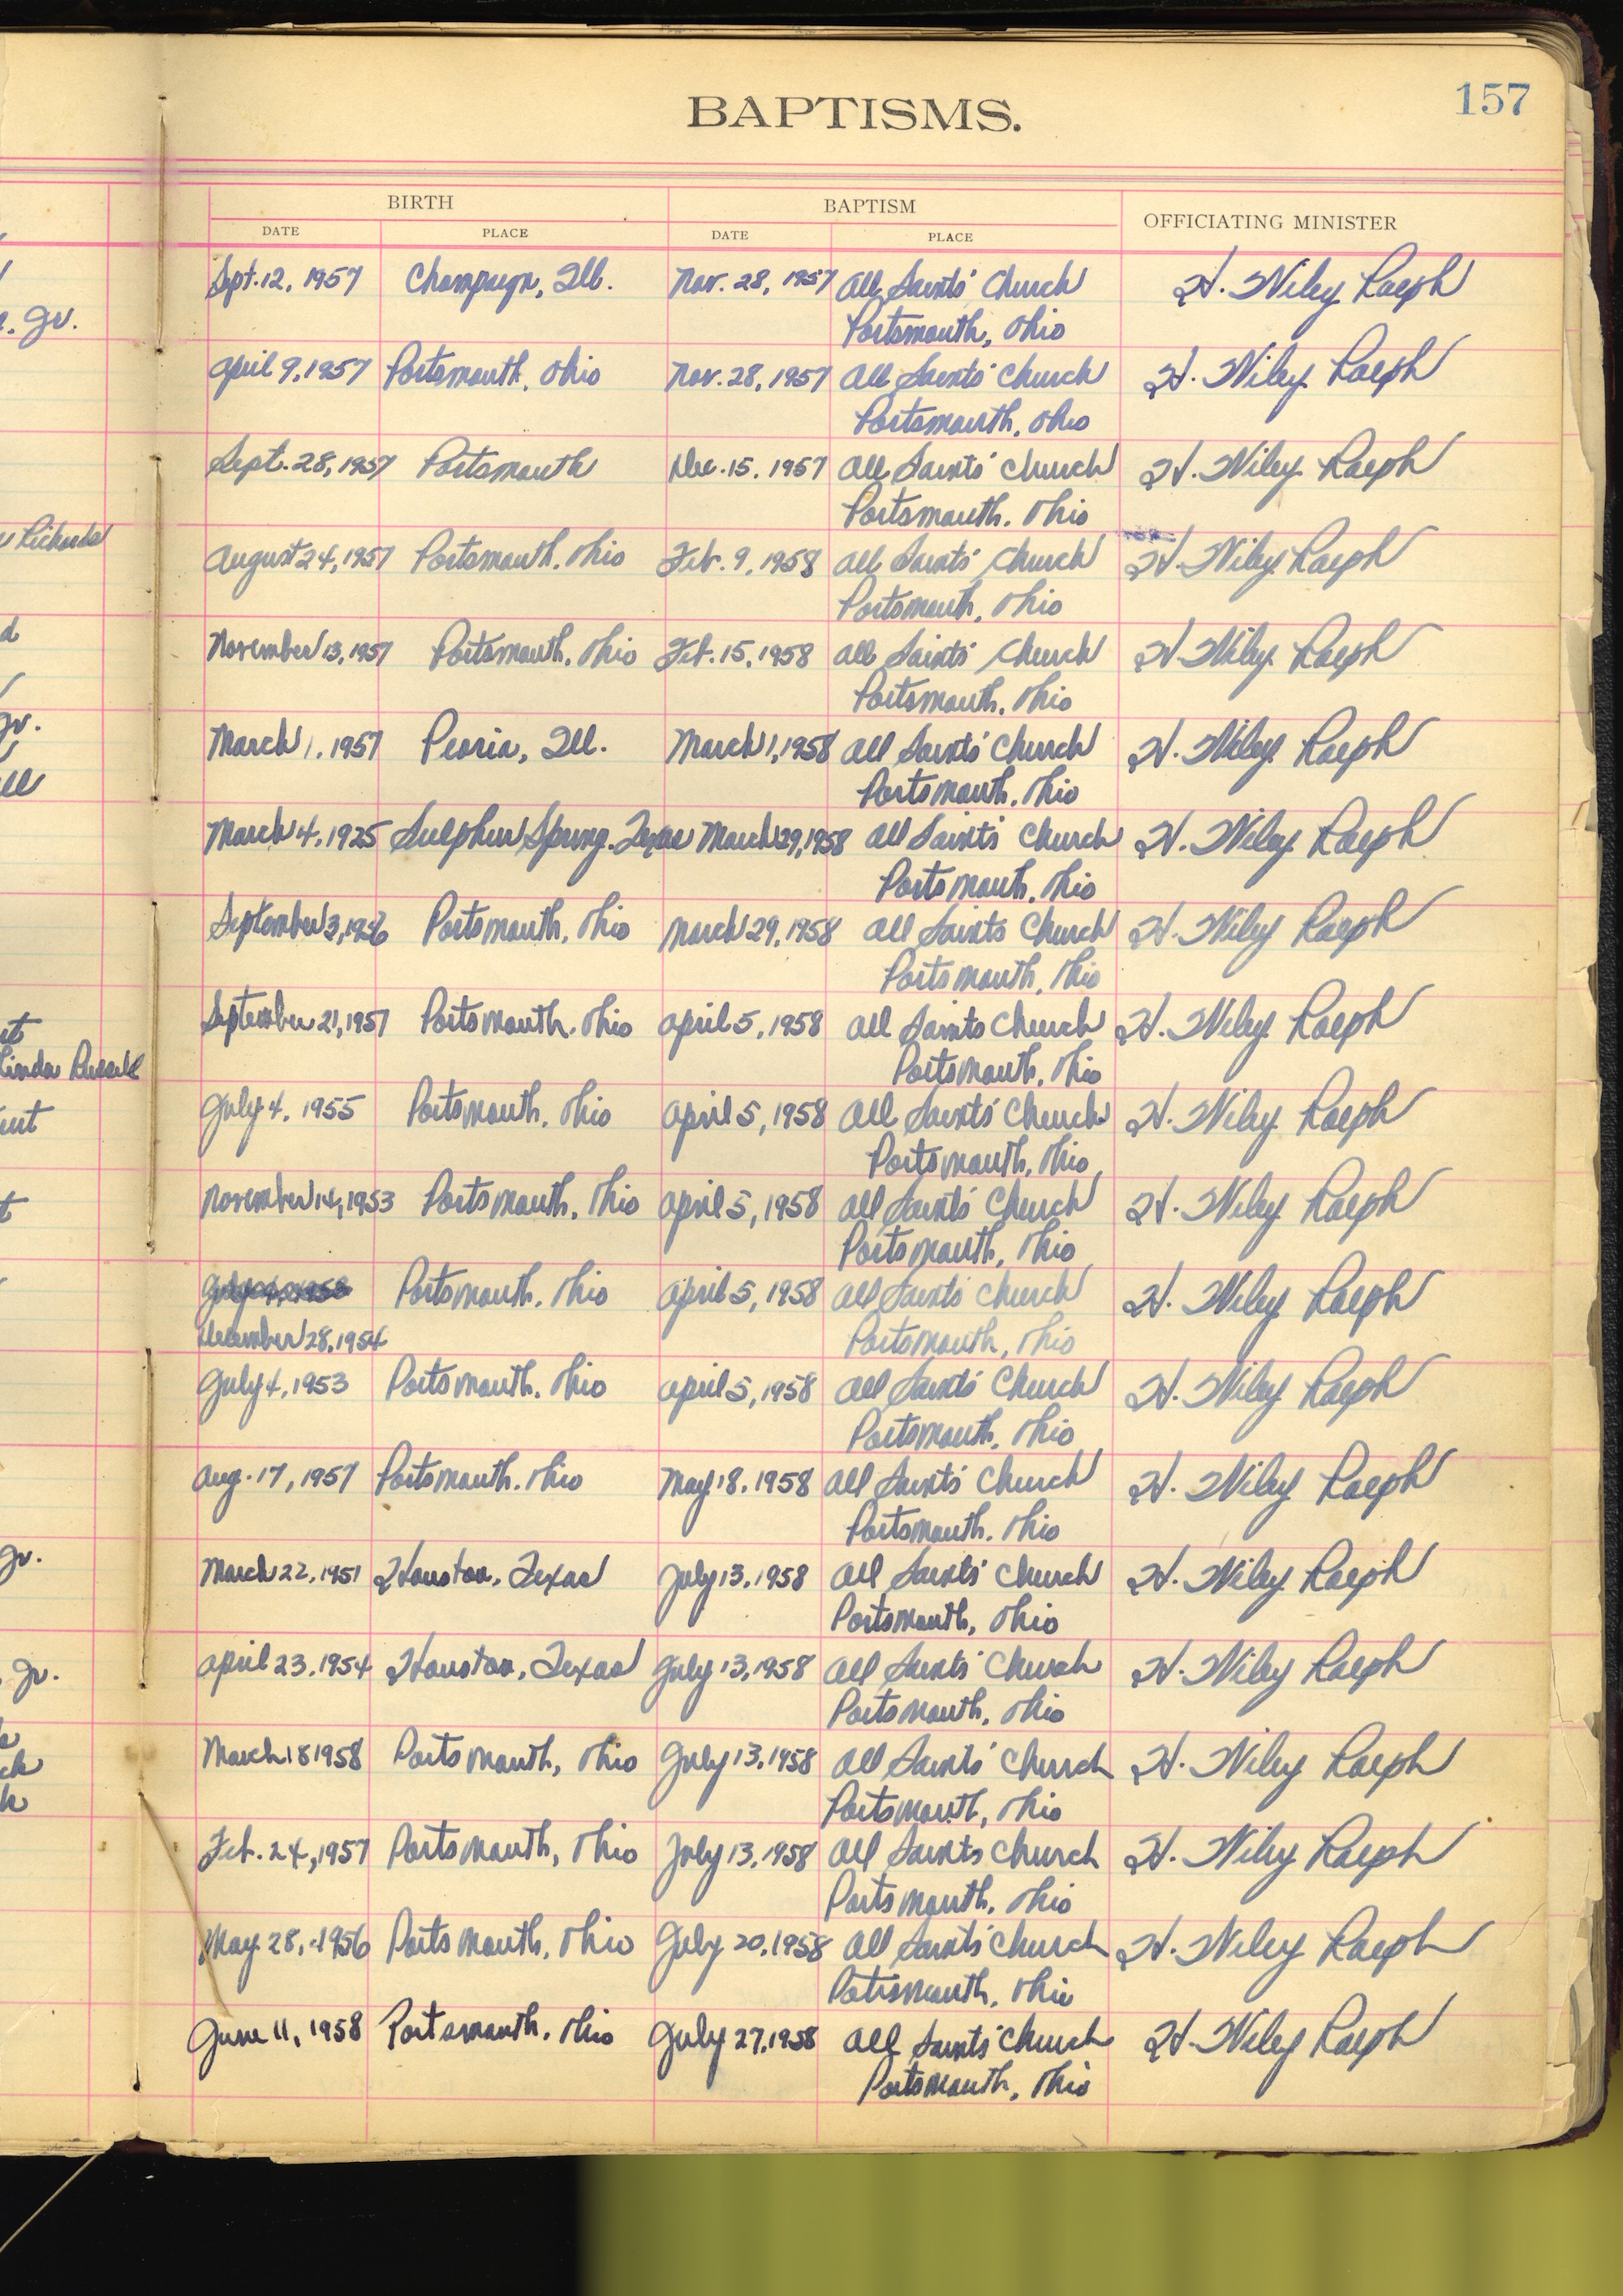 BAPTISMS.
157
BIRTH BAPTISM OFFICIATING MINISTER
DATE PLACE DATE PLACE
Sept. 12, 1957 Champaign, Ill. Nov. 28, 1957 All Saints' Church H. Wiley Ralph
Jr. Portsmouth, Ohio
April 9, 1957 Portsmouth, Ohio Nov. 28, 1957 All Saints' Church H. Wiley Ralph
Portsmouth, Ohio
Sept. 28, 1957 Portsmouth Dec. 15, 1957 All Saints' Church H. Wiley Ralph
Portsmouth, Ohio
Richards
August 24, 1957 Portsmouth, Ohio Feb. 9, 1958 All Saints' Church H. Wiley Ralph
Portsmouth, Ohio
November 13, 1957 Portsmouth, Ohio Feb. 15, 1958 All Saints' Church H. Wiley Ralph
Portsmouth, Ohio
Jr.
March 1, 1957 Peoria, Ill. March 1, 1958 All Saints' Church H. Wiley Ralph
Portsmouth, Ohio
March 4, 1925 Sulphur Spring, Texas March 29, 1958 All Saints' Church H. Wiley Ralph
Portsmouth, Ohio
September 3, 1926 Portsmouth, Ohio March 29, 1958 All Saints Church H. Wiley Ralph
Portsmouth, Ohio
September 21, 1957 Portsmouth, Ohio April 5, 1958 All Saints Church H. Wiley Ralph
Linda Russell Portsmouth, Ohio
July 4, 1955 Portsmouth, Ohio April 5, 1958 All Saints' Church H. Wiley Ralph
Portsmouth, Ohio
November 14, 1953 Portsmouth, Ohio April 5, 1958 All Saints' Church H. Wiley Ralph
Portsmouth, Ohio
Portsmouth, Ohio April 5, 1958 All Saints' Church H. Wiley Ralph
December 28, 1954 Portsmouth, Ohio
July 4, 1953 Portsmouth, Ohio April 5, 1958 All Saints' Church H. Wiley Ralph
Portsmouth, Ohio
Aug. 17, 1957 Portsmouth, Ohio May 18, 1958 All Saints' Church H. Wiley Ralph
Portsmouth, Ohio
Jr.
March 22, 1951 Houston, Texas July 13, 1958 All Saints' Church H. Wiley Ralph
Portsmouth, Ohio
April 23, 1954 Houston, Texas July 13, 1958 All Saints' Church H. Wiley Ralph
Jr. Portsmouth, Ohio
March 18 1958 Portsmouth, Ohio July 13, 1958 All Saints' Church H. Wiley Ralph
Portsmouth, Ohio
Feb. 24, 1957 Portsmouth, Ohio July 13, 1958 All Saints Church H. Wiley Ralph
Portsmouth, Ohio
May 28, 1956 Portsmouth, Ohio July 20, 1958 All Saints' Church H. Wiley Ralph
Potrsmouth, Ohio
June 11, 1958 Portsmouth, Ohio July 27, 1958 All Saints' Church H. Wiley Ralph
Portsmouth, Ohio